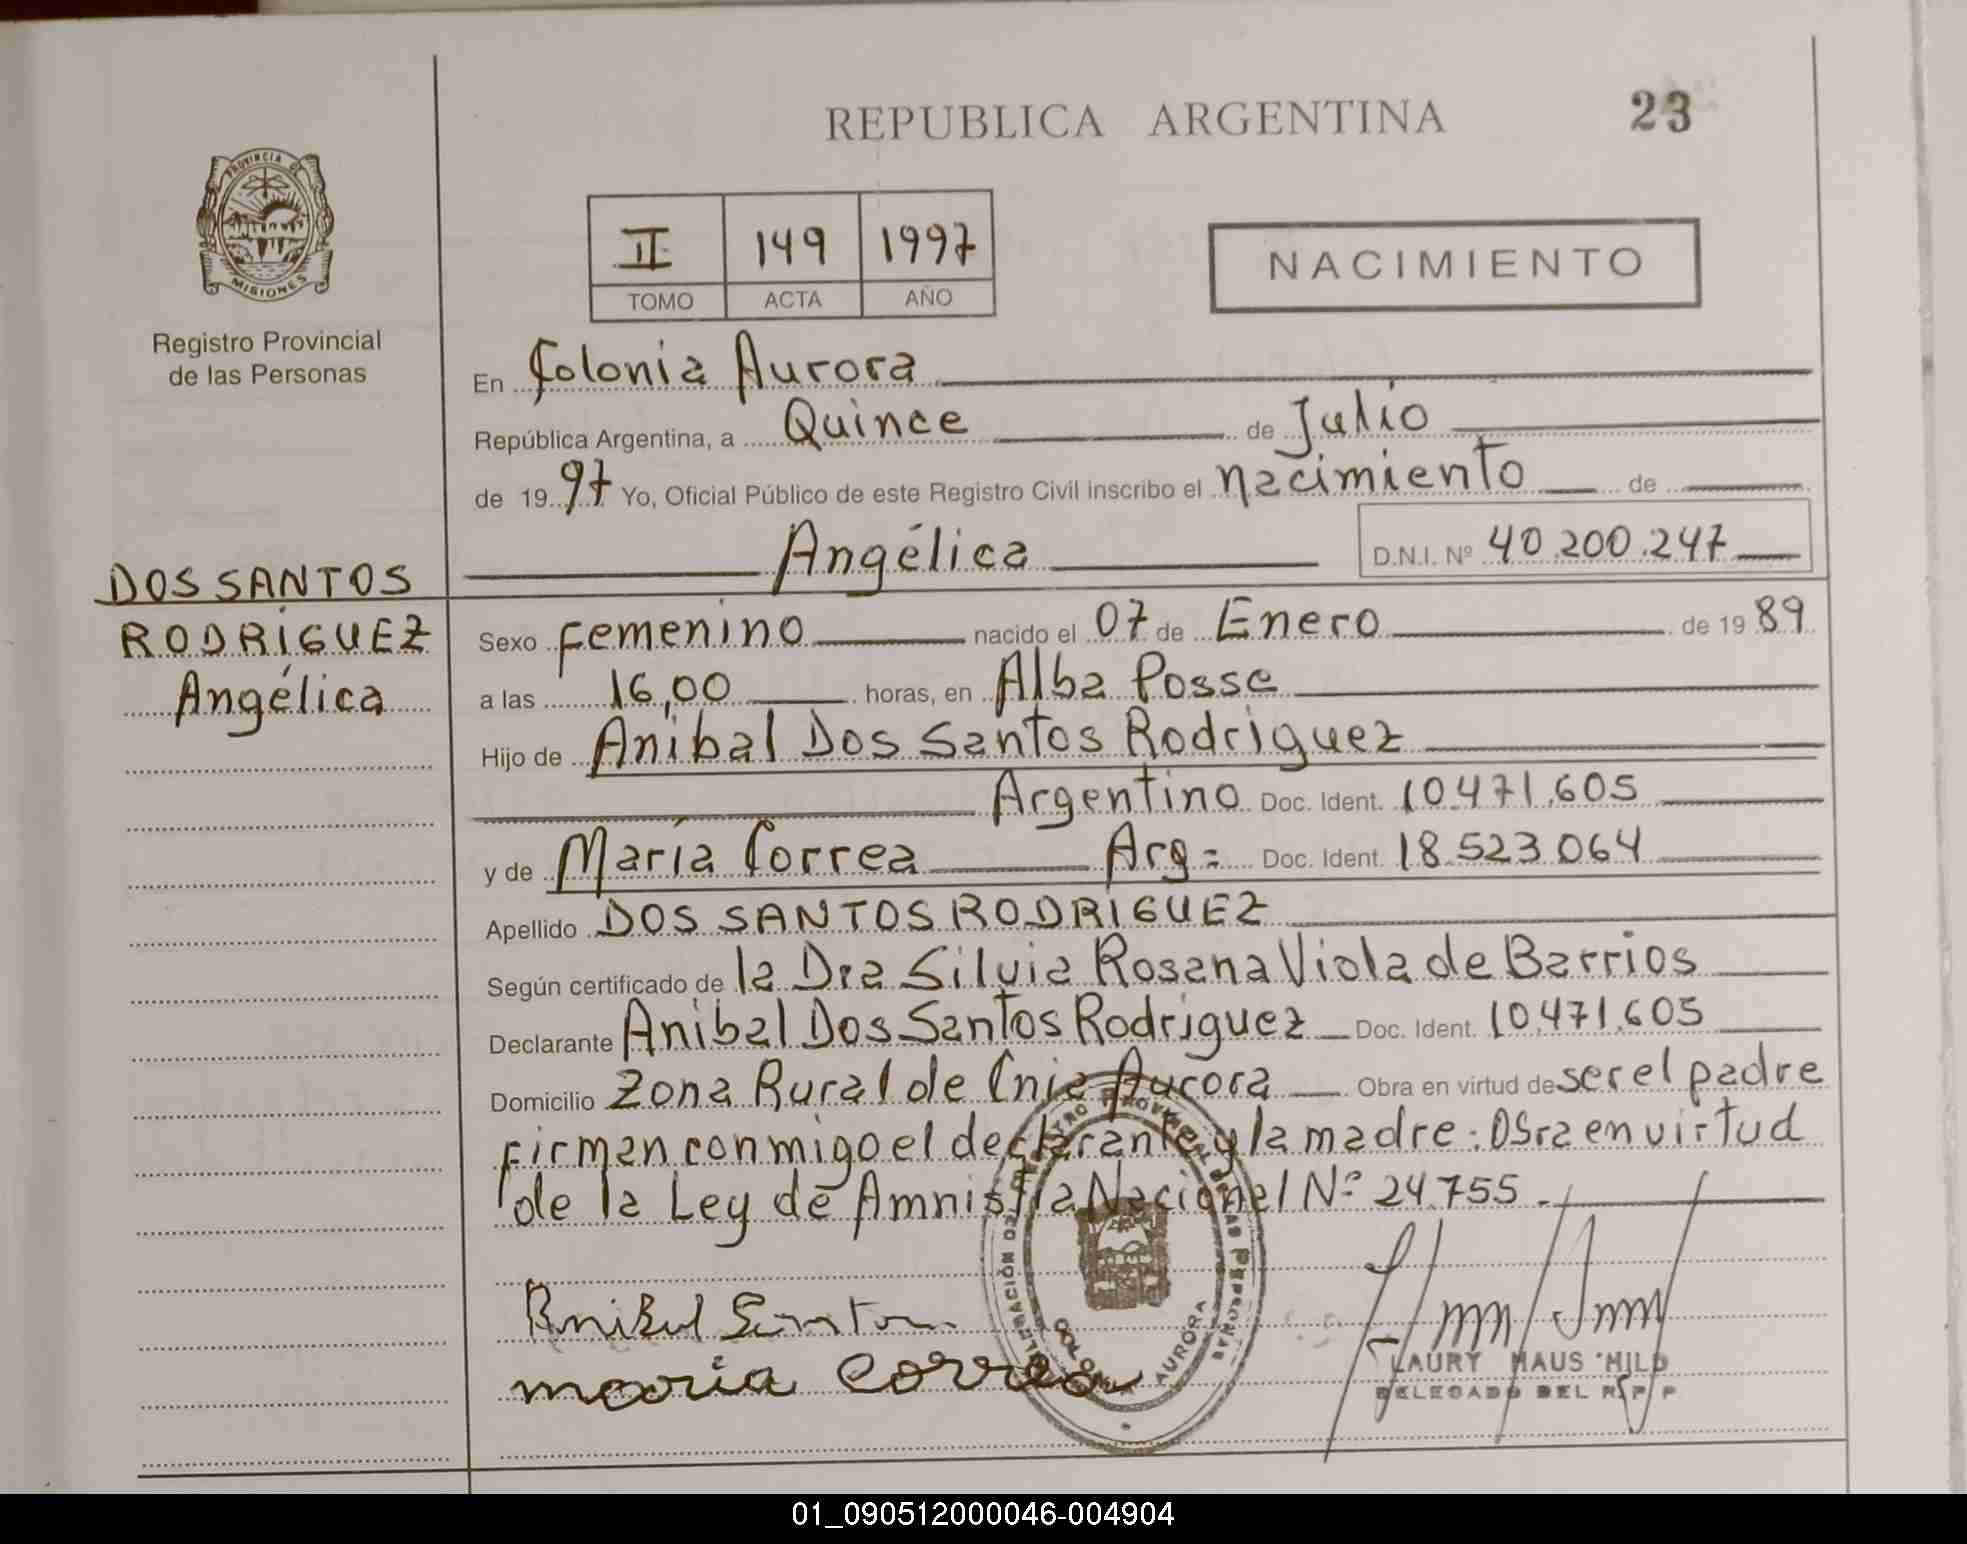 REPUBLICA ARGENTINA
23
PROVINCIA DE
MISIONES
Registro Provincial
de las Personas
II 149 1997
TOMO ACTA AÑO
NACIMIENTO
En Colonia Aurora
República Argentina, a Quince de Julio
de 1997 Yo, Oficial Público de este Registro Civil inscribo el nacimiento de
Angélica D.N.I. Nº 40.200.247
DOS SANTOS
RODRÍGUEZ
Angélica
Sexo Femenino nacido el 07 de Enero de 1989
a las 16,00 horas, en Alba Posse
Hijo de Anibal Dos Santos Rodriguez
Argentino Doc. Ident. 10.471.605
y de María Correa Arg= Doc. Ident. 18.523.064
Apellido DOS SANTOS RODRIGUEZ
Según certificado de la Dra Silvia Rosana Viola de Barrios
Declarante Anibal Dos Santos Rodriguez Doc. Ident. 10.471.605
Domicilio Zona Rural de Cnia Aurora Obra en virtud de ser el padre
Firman conmigo el declarante y la madre: OSra en virtud
de la Ley de Amnistia Nacional Nº 24.755.
Anibal Santos
maria correa
COLONIA AURORA
LAURY HAUS HILD
DELEGADO DEL R P P
01_090512000046-004904